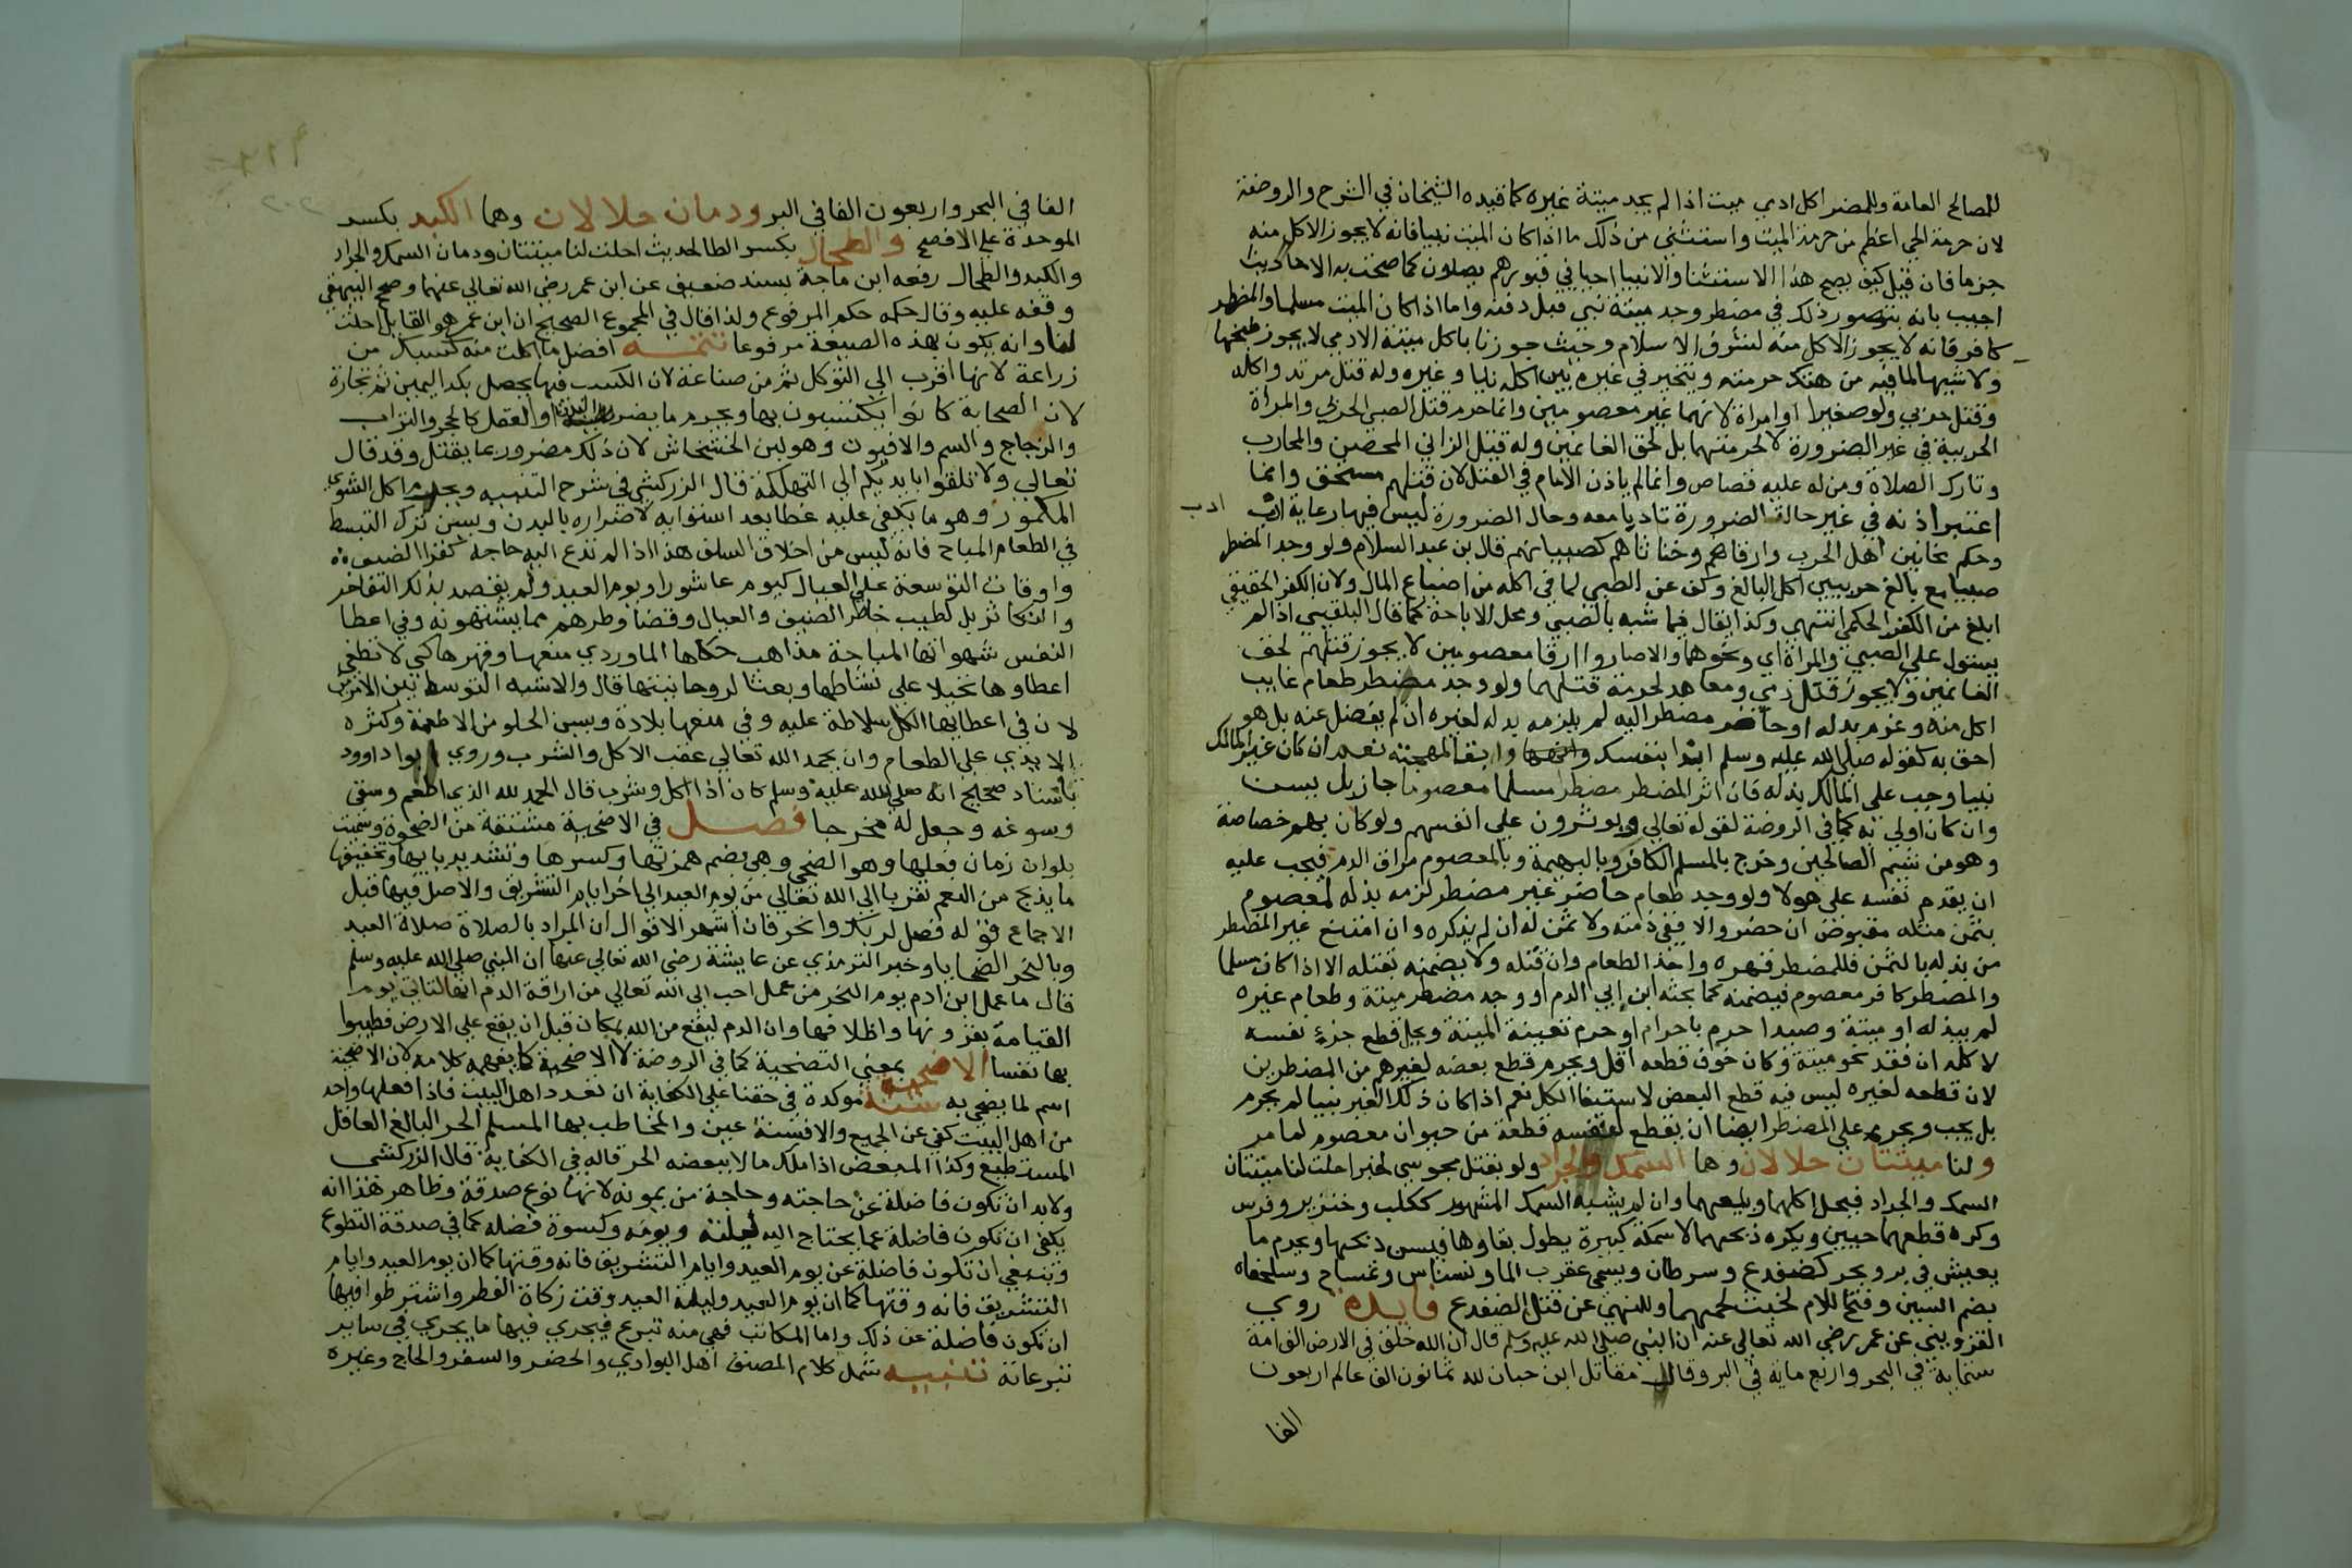 للمصالح العامة وللمضر اكل ادمي ميت اذا لم يجد ميتة غيره كما قيده الشيخان في الشرح والروضة
لان حرمة الحي اعظم من حرمة الميت واستثنى من ذلك ما اذا كان الميت نبيا فانه لا يجوز الاكل منه
جزما فان قيل كيف يصح هذا الاستثنا والانبيا احيا في قبورهم يصلون كما صحت به الاحاديث
اجيب بانه يتصور ذلك في مضطر وجد ميتة نبي قبل دفنه واما اذا كان الميت مسلما والمضطر
كافر فانه لا يجوز الاكل منه لشرف الاسلام وحيث جوزنا باكل ميتة الادمي لا يجوز طبخها
ولا شيها لما فيه من هتك حرمته ويتخير في غيره بين اكله نيا وغيره وله قتل مرتد واكله
وقتل حربي ولو صغيرا او امراة لانهما غير معصومين وانما حرم قتل الصبي الحربي والمراة
الحربية في غير الضرورة لا لحرمتهما بل لحق الغانمين وله قتل الزاني المحصن والمحارب
وتارك الصلاة ومن له عليه قصاص وانما لم ياذن الامام في القتل لان قتلهم مستحق وانما
اعتبر اذنه في غير حالة الضرورة تاديا معه وحال الضرورة ليس فيها رعاية ادب
وحكم مجانين اهل الحرب وارقاهم وخناثاهم كصبيانهم قال بن عبد السلام ولو وجد المضطر
صبيا مع بالغ حربيين اكل البالغ وكف عن الصبي لما في اكله من اضياع المال ولان الكفر الحقيقي
ابلغ من الكفر الحكمي انتهى وكذا يقال فيما شبه بالصبي ومحل الاباحة كما قال البلقيني اذا لم
يستول على الصبي والمراة اي ونحوهما والاصاروا ارقا معصومين لا يجوز قتلهم لحق
الغانمين ولا يجوز قتل ذمي ومعاهد لحرمة قتلهما ولو وجد مضطر طعام غايب
اكل منه وغرم بدله او حاضر مضطر اليه لم يلزمه بدله لغيره ان لم يفضل عنه بل هو
احق به كقوله صلى الله عليه وسلم ابدا بنفسك وابقا لمهجته نعم ان كان غير المالك
نبيا وجب على المالك بذله فان اثر المضطر مضطرا مسلما معصوما جاز بل يسن
وان كان اولى به كما في الروضة لقوله تعالى ويوثرون على انفسهم ولو كان بهم خصاصة
وهو من شيم الصالحين وخرج بالمسلم الكافر وبالبهيمة وبالمعصوم مراق الدم فيجب عليه
ان يقدم نفسه على هولا ولو وجد طعام حاضر غير مضطر لزمه بذله لمعصوم
بثمن مثله مقبوض ان حضر والا ففي ذمته ولا ثمن له ان لم يذكره وان امتنع غير المضطر
من بذله بالثمن فللمضطر قهره واخذ الطعام وان قتله ولا يضمنه بقتله الا اذا كان مسلما
والمضطر كافر معصوم فيضمنه كما بحثه ابن ابي الدم او وجد مضطر ميتة وطعام غيره
لم يبذله او ميتة وصيدا حرم باحرام او حرم تعينت الميتة ويحل قطع جزء نفسه
لاكله ان فقد نحو ميتة وكان خوف قطعه اقل ويحرم قطع بعضه لغيرهم من المضطرين
لان قطعه لغيره ليس فيه قطع البعض لاستبقا الكل نعم اذا كان ذلك الغير نبيا لم يحرم
بل يجب ويحرم على المضطر ايضا ان يقطع لنفسه قطعة من حيوان معصوم لما مر
ولنا ميتتان حلالان وهما السمك والجراد ولو بقتل مجوسي لخبر احلت لنا ميتتان
السمك والجراد فيحل اكلهما وبلعهما وان لم يشبه السمك المشهور ككلب وخنزير وفرس
وكره قطعهما حيين ويكره ذبحهما الا سمكة كبيرة يطول بقاوها فيسن ذبحها ويحرم ما
يعيش في بر وبحر كضفدع وسرطان ويسمى عقرب الما ونسناس وتمساح وسلحفاه
بضم السين وفتح اللام لخبث لحمها وللنهي عن قتل الضفدع فايدة روي
القزويني عن عمر رضي الله تعالى عنه ان النبي صلى الله عليه وسلم قال ان الله خلق في الارض الف امة
ستماية في البحر واربع ماية في البر وقال مقاتل ابن حبان لله ثمانون الف عالم اربعون
الفا
الفا في البحر واربعون الفا في البر ودمان حلالان وهما الكبد بكسر
الموحدة على الافصح والطحال بكسر الطا لحديث احلت لنا ميتتان ودمان السمك والجراد
والكبد والطحال رفعه ابن ماجة بسند ضعيف عن ابن عمر رضي الله تعالى عنهما وصحح البيهقي
وقفه عليه وقال حكمه حكم المرفوع ولذا قال في المجموع الصحيح ان ابن عمر هو القايل احلت
لنا وانه يكون بهذه الصيغة مرفوعا تتمة افضل ما اكلت منه كسبك من
زراعة لانها اقرب الى التوكل ثم من صناعة لان الكسب فيها يحصل بكد اليمين ثم تجارة
لان الصحابة كانوا يكتسبون بها ويحرم ما يضر البدن او العقل كالحجر والتراب
والزجاج والسم والافيون وهو لبن الخشخاش لان ذلك مضر وربما يقتل وقد قال
تعالى ولا تلقوا بايديكم الى التهلكة قال الزركشي في شرح التنبيه ويحرم اكل الشوي
المكمور وهو ما يكفى عليه غطا بعد استوايه لاضراره بالبدن ويسن ترك التبسط
في الطعام المباح فانه ليس من اخلاق السلف هذا اذا لم تدع اليه حاجة كقرا الضيوف
واوقات التوسعة على العيال كيوم عاشورا ويوم العيد ولم يقصد بذلك التفاخر
والتكاثر بل لطيب خاطر الضيف والعيال وقضا وطرهم مما يشتهونه وفي اعطا
النفس شهواتها المباحة مذاهب حكاها الماوردي منعها وقهرها كي لا تطغى
اعطاوها تحيلا على نشاطها وبعثا لروحانيتها قال والاشبه التوسط بين الامرين
لان في اعطايها الكل سلاطة عليه وفي منعها بلادة ويسن الحلو من الاطعمة وكثره
الايدي على الطعام وان يحمد الله تعالى عقب الاكل والشرب وروي ابو داوود
باسناد صحيح انه صلى الله عليه وسلم كان اذا اكل وشرب قال الحمد لله الذي اطعم وسقى
وسوغه وجعل له مخرجا فصل في الاضحية مشتقة من الضحوة وسميت
باول زمان فعلها وهو الضحى وهي بضم همزتها وكسرها وتشديد يايها وتخفيفها
ما يذبح من النعم تقربا الى الله تعالى من يوم العيد الى اخر ايام التشريق والاصل فيها قبل
الاجماع قوله فصل لربك وانحر فان اشهر الاقوال ان المراد بالصلاة صلاة العيد
وبالنحر الضحايا وخبر الترمذي عن عايشة رضي الله تعالى عنها ان النبي صلى الله عليه وسلم
قال ما عمل ابن ادم يوم النحر من عمل احب الى الله تعالى من اراقة الدم انها لتاتي يوم
القيامة بقرونها واظلافها وان الدم ليقع من الله بمكان قبل ان يقع على الارض فطيبوا
بها نفسا الاضحية بمعنى التضحية كما في الروضة لا الاضحية كما يفهمه كلامه لان الاضحية
اسم لما يضحى به سنة موكدة في حقنا على الكفاية ان تعدد اهل البيت فاذا فعلها واحد
من اهل البيت كفى عن الجميع والا فسنة عين والمخاطب بها المسلم الحر البالغ العاقل
المستطيع وكذا المبعض اذا ملك مالا ببعضه الحر قاله في الكفاية قال الزركشي
ولا بد ان تكون فاضلة عن حاجته وحاجة من يمونه لانها نوع صدقة وظاهر هذا انه
يكفى ان تكون فاضلة عما يحتاج اليه ليلته ويومه وكسوة فصله كما في صدقة التطوع
وينبغي ان تكون فاضلة عن يوم العيد وايام التشريق فانه وقتها كما ان يوم العيد وايام
التشريق فانه وقتها كما ان يوم العيد وليلة العيد وقت زكاة الفطر واشترطوا فيها
ان تكون فاضلة عن ذلك واما المكاتب فهي منه تبرع فيجري فيها ما يجري في ساير
تبرعاته تنبيه شمل كلام المصنف اهل البوادي والحضر والسفر والحاج وغيره